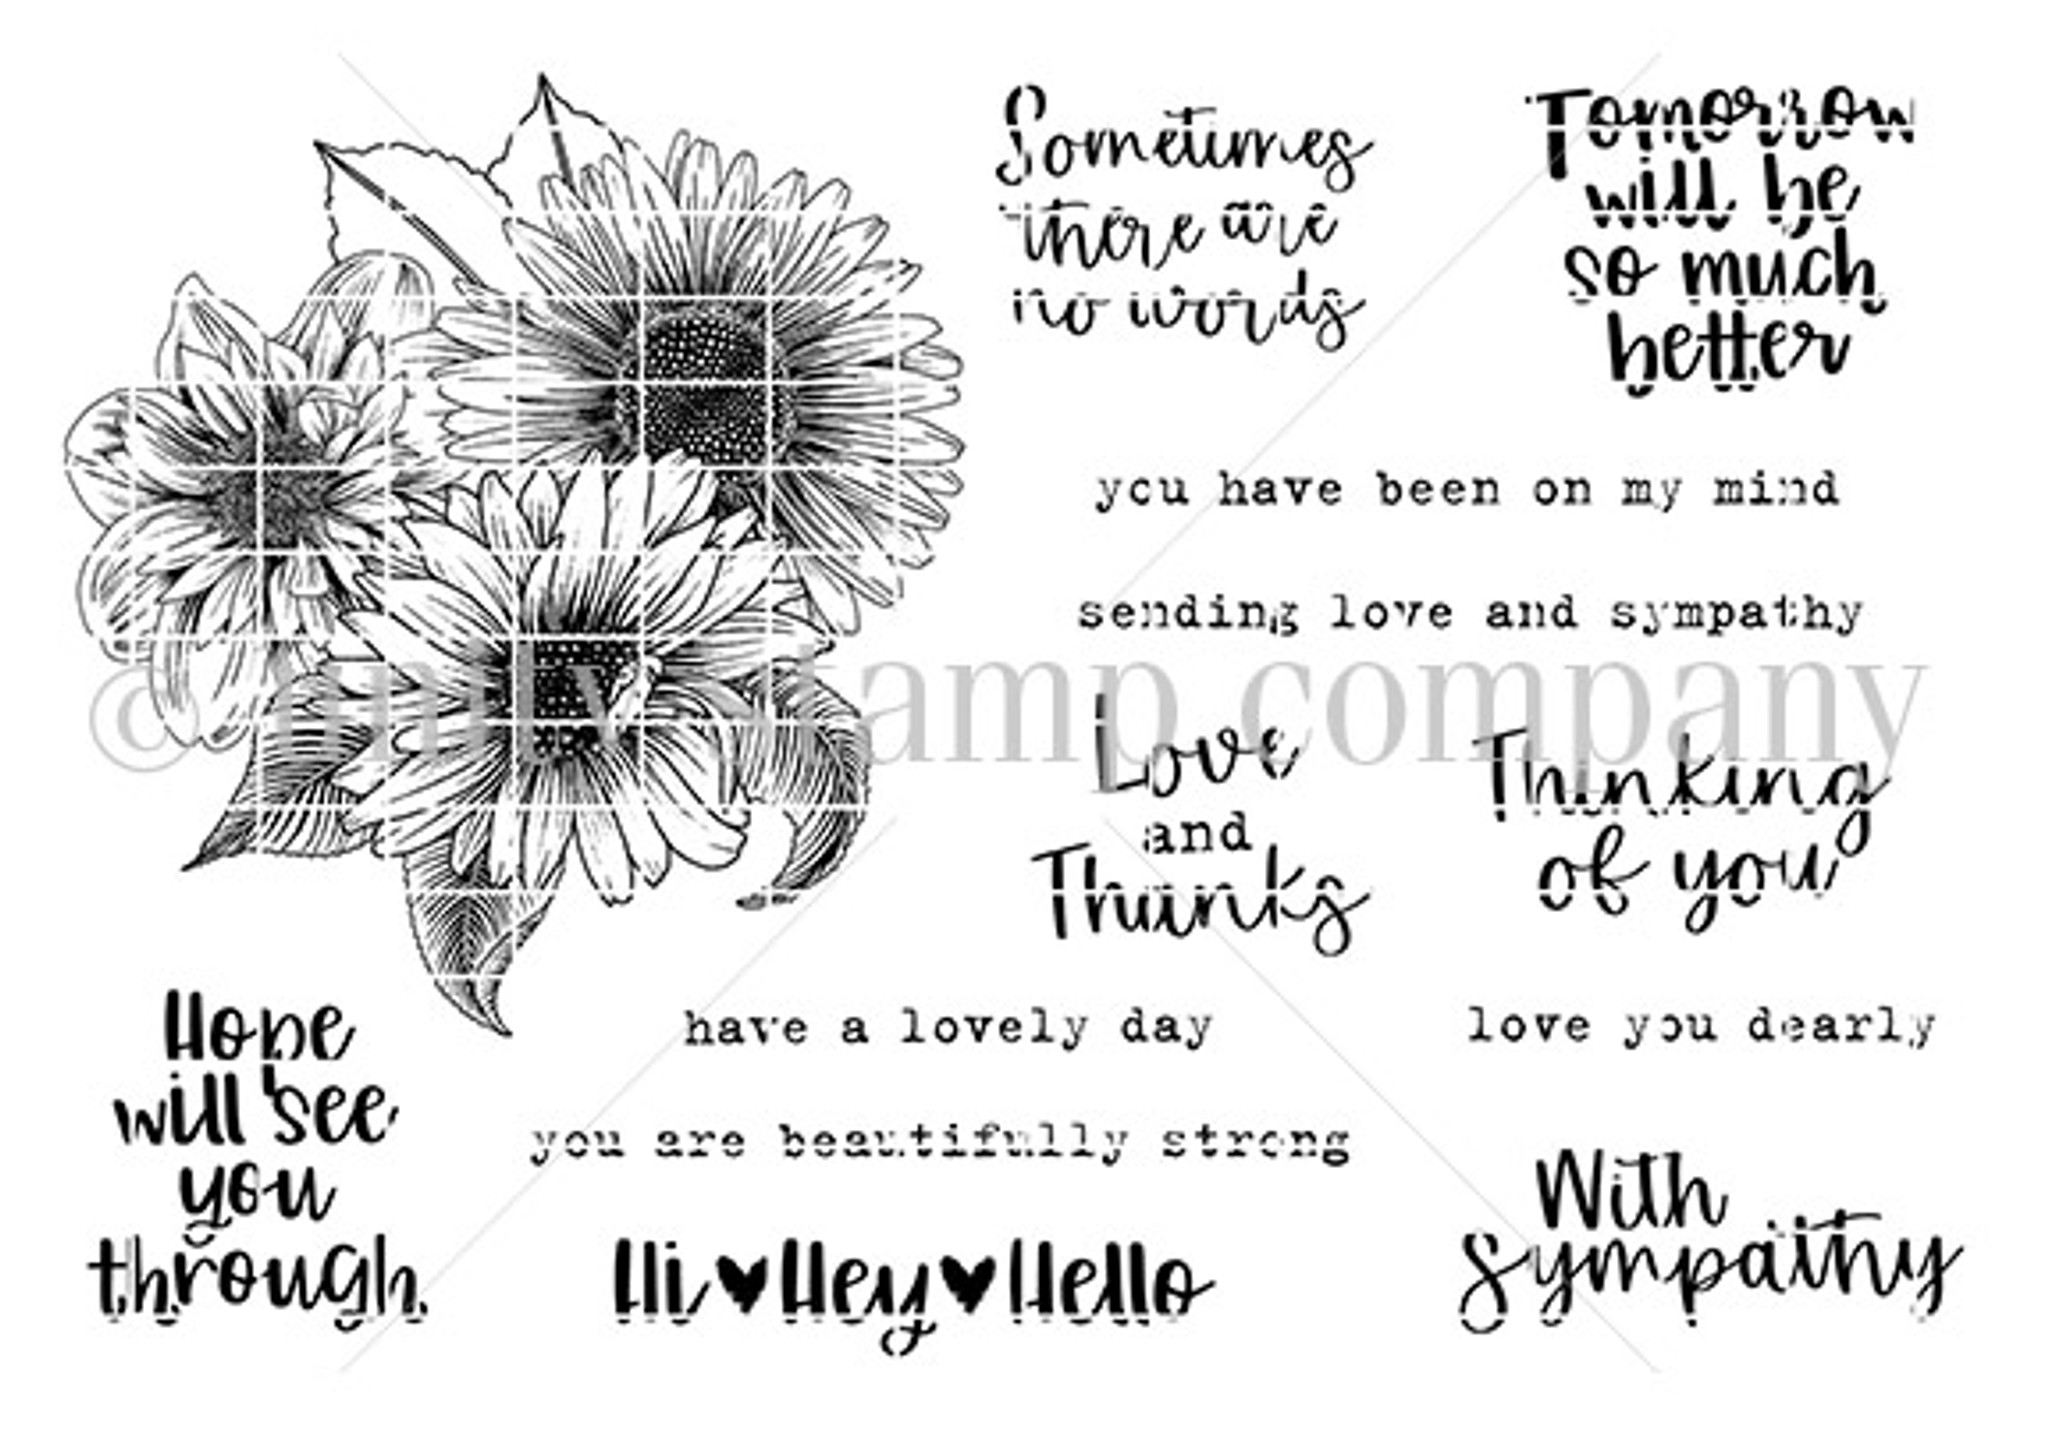 Sometimes
there are
no words
Tomorrow
will be
so much
better
you have been on my mind
sending love and sympathy
© stamp company
Love
and
Thanks
Thinking
of you
Hope
will see
you
through
have a lovely day
love you dearly
you are beautifully strong
Hi♥Hey♥Hello
With
Sympathy